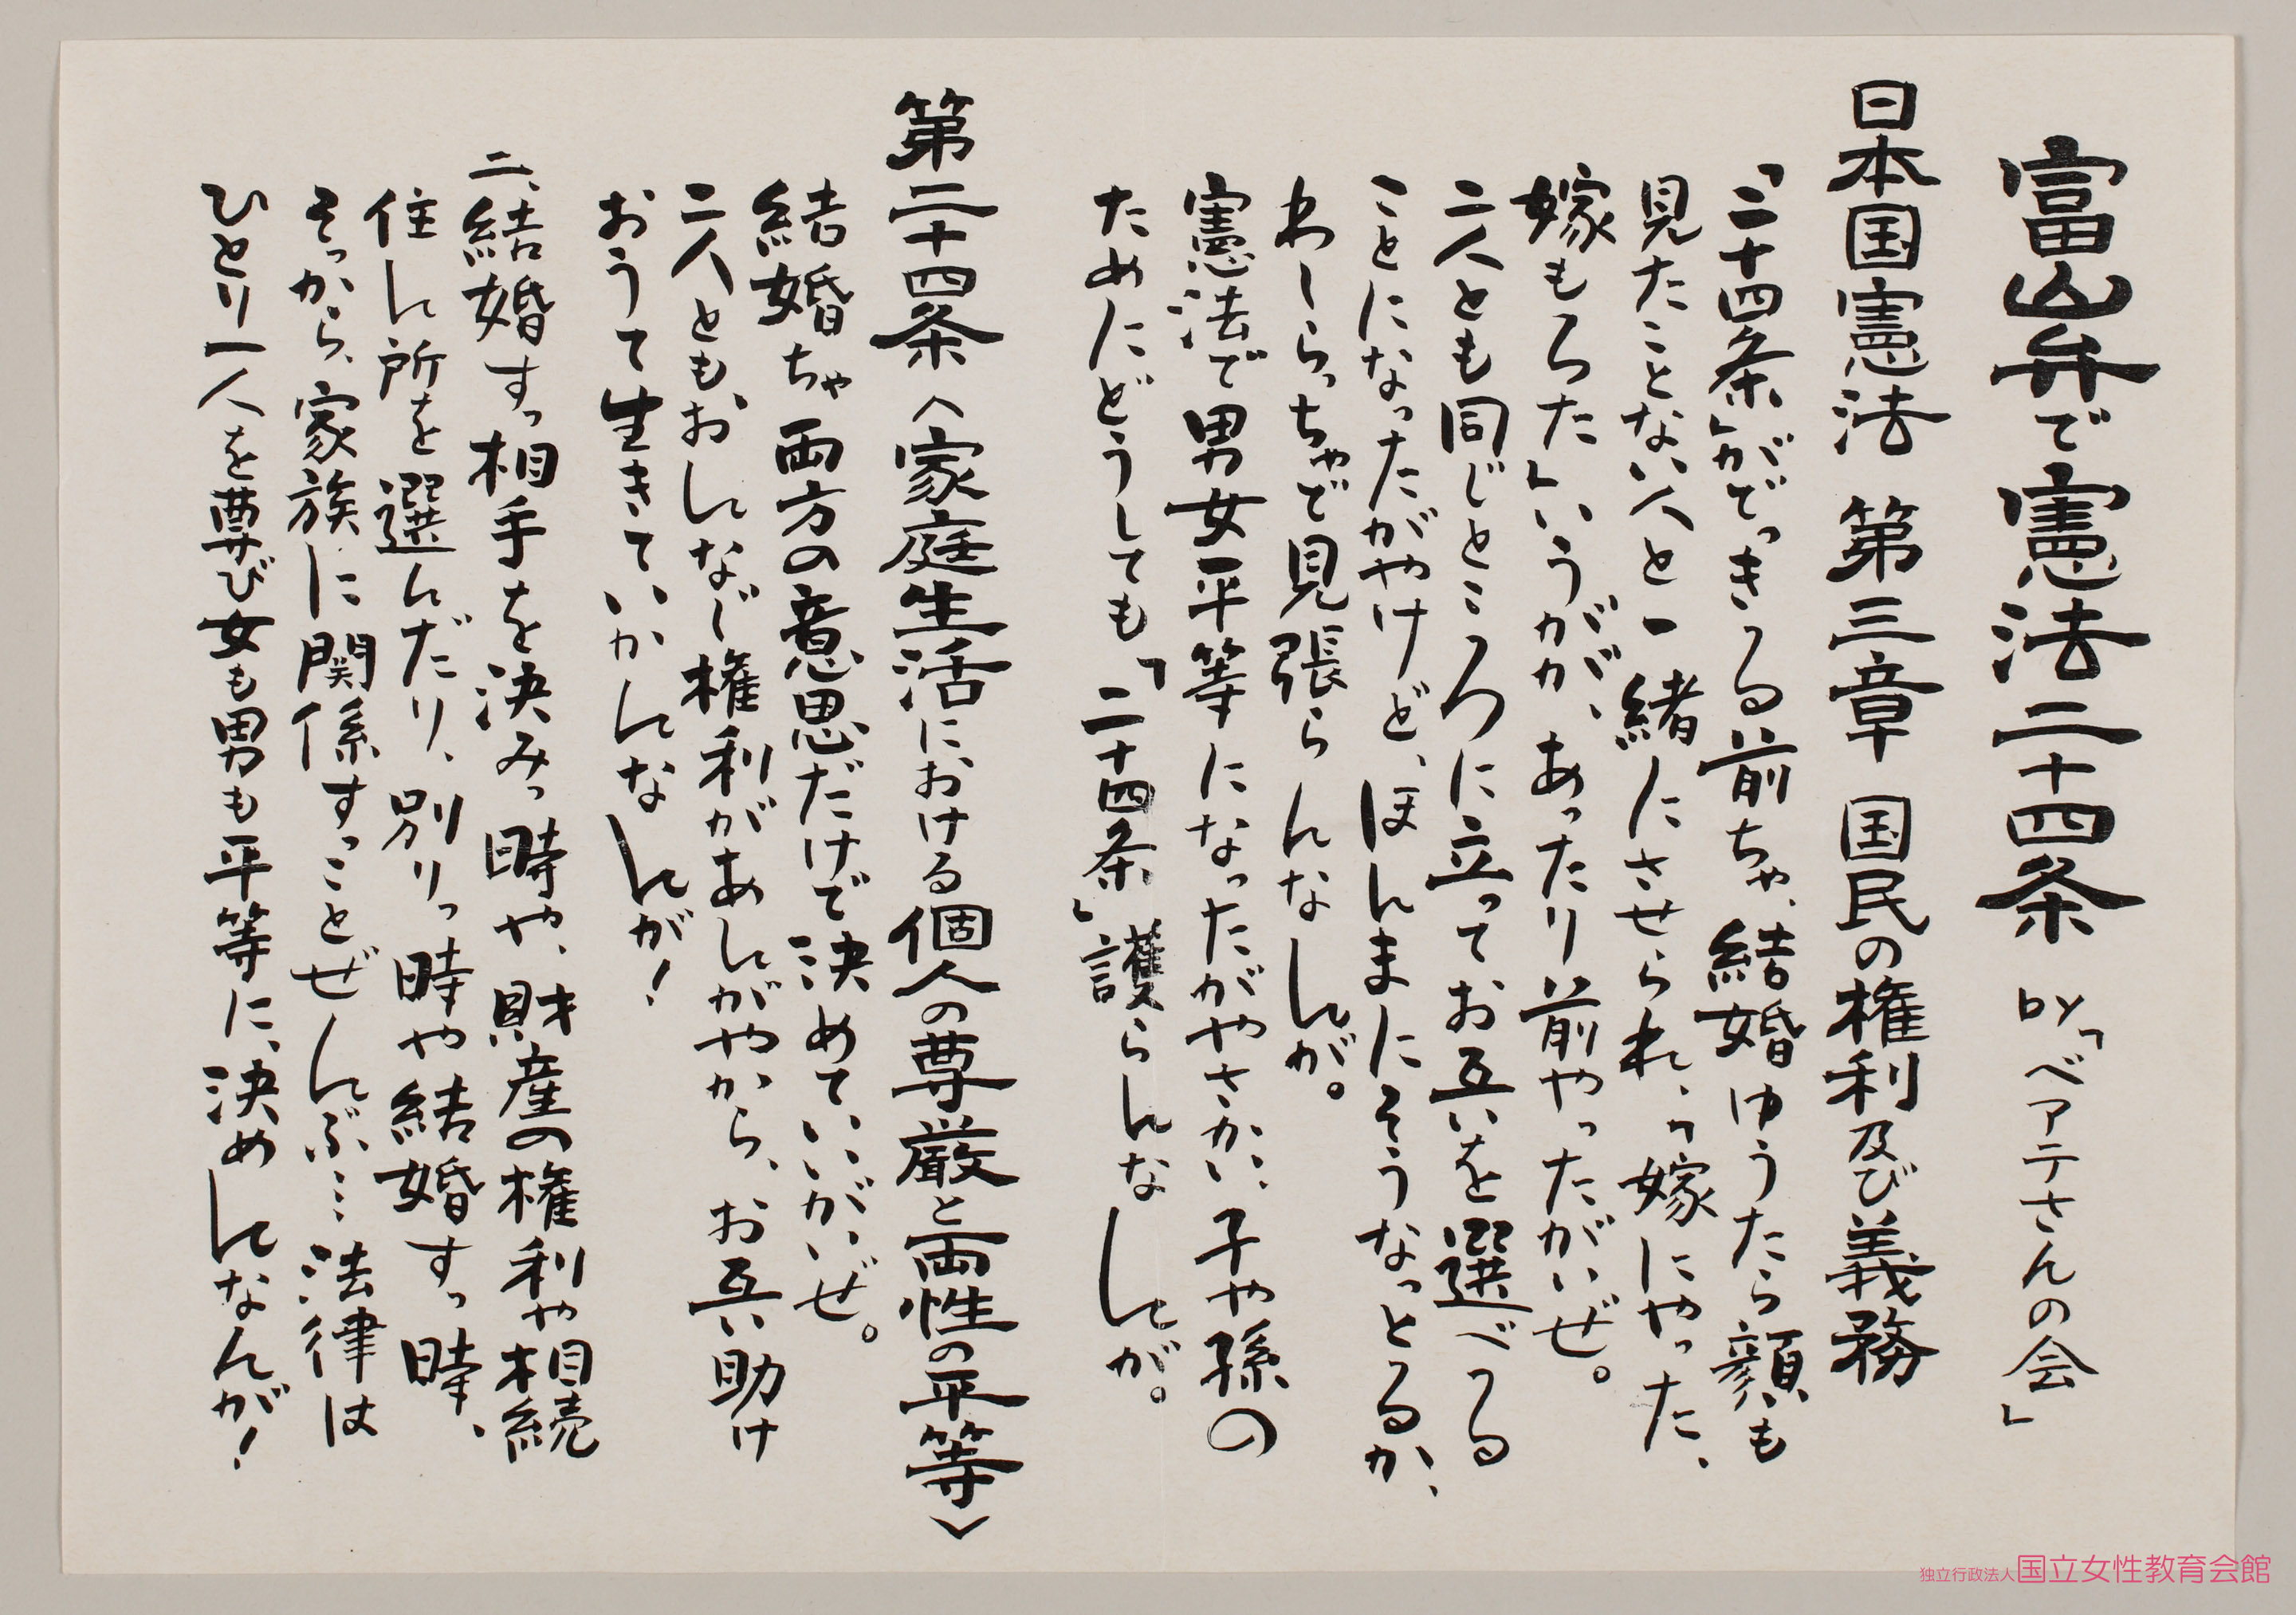 富山弁で憲法二十四条 by「ベアテさんの会」
日本国憲法 第三章 国民の権利及び義務
「二十四条」がでっきる前ちゃ、結婚ゆうたら顔も
見たことない人と一緒にさせられ、「嫁にやった、
嫁もろた」いうがが、あったり前やったがいぜ。
二人とも同じところに立ってお互いを選べる
ことになったがやけど、ほんまにそうなっとるか、
わしらっちゃで見張らんなんが。
憲法で男女平等になったがやさかい、子や孫の
ためにどうしても、「二十四条」護らんなんが。
第二十四条〈家庭生活における個人の尊厳と両性の平等〉
結婚ちゃ両方の意思だけで決めていいがいぜ。
二人とも、おんなじ権利があんがやから、お互い助け
おうて生きていかんなんが!
二、結婚すっ相手を決みっ時や、財産の権利や相続
住ん所を選んだり、別りっ時や結婚すっ時、
そっから、家族に関係すっことぜんぶ…法律は
ひとり一人を尊び女も男も平等に、決めんなんが!
独立行政法人国立女性教育会館